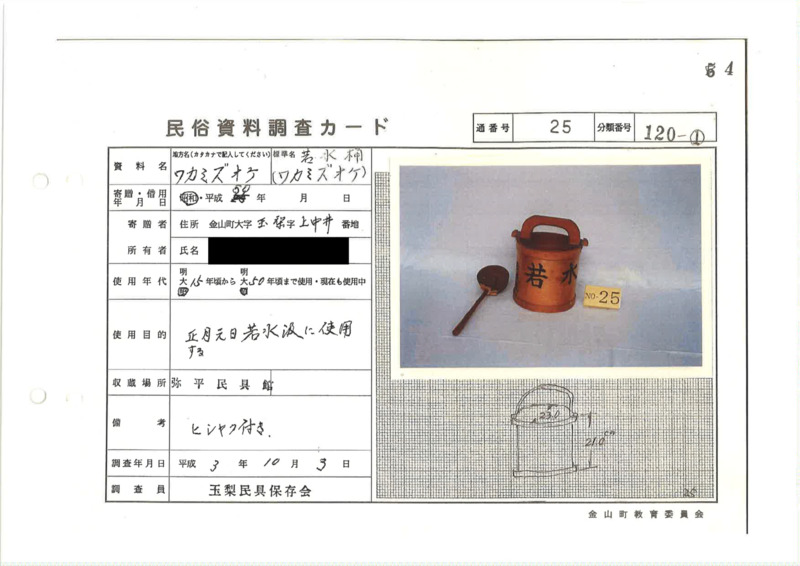 54
民俗資料調査カード
通番号 25 分類番号 120-①
資料名 地方名(カタカナで記入してください) ワカミズオケ 標準名 若水桶 (ワカミズオケ)
寄贈・借用年月日 昭和・平成 年 月 日
寄贈者 住所 金山町大字玉梨字上中井 番地
所有者 氏名
使用年代 明大昭15年頃から明大昭50年頃まで使用・現在も使用中
使用目的 正月元日若水汲に使用
する
収蔵場所 弥平民具館
備考 ヒシャク付き.
調査年月日 平成 3 年 10 月 3 日
調査員 玉梨民具保存会
若水
NO.25
23.0
21.0cm
25
金山町教育委員会